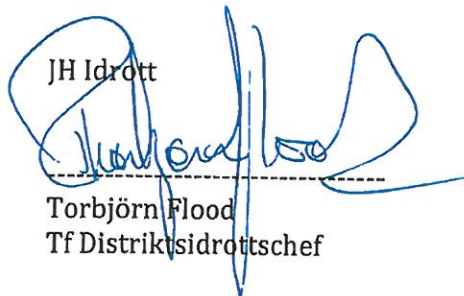 JH Idrott
Torbjörn Flood
Torbjörn Flood
Tf Distriktsidrottschef